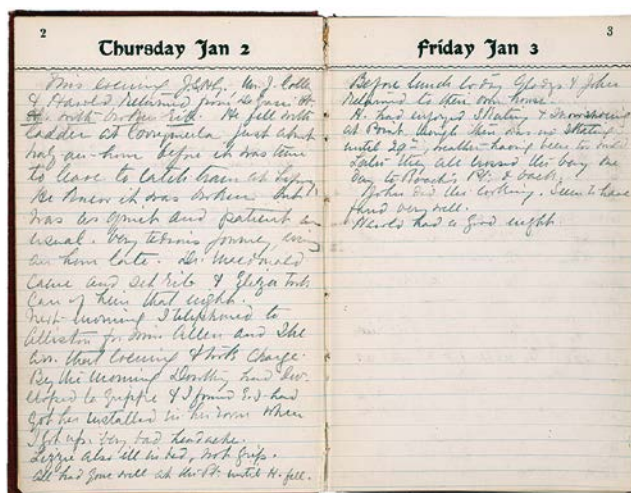 2
Thursday Jan 2
This evening Mr. J. Colley
& Harold returned from
with broken rib. He fell with
ladder at just about
half an hour before it was time
to leave to catch train at
He knew it was broken but
was as quiet and patient as
usual. Very tedious journey,
an hour late. Dr. Macdonald
came and set rib & Eliza took
care of him that night.
Next morning I telephoned to
Alliston for Miss Allen and she
came that evening & took charge.
By the morning Dorothy had dev-
eloped la grippe & I found E.J. had
got her installed in her room when
I got up. Very bad headache.
Lizzie also ill in bed, not grip.
All had gone well at the Pt. until H. fell.
3
Friday Jan 3
Before lunch today Gladys & John
returned to their own house.
H. had enjoyed skating & snowshoeing
at Point, though there was no skating
until 29th, weather having been too mild
Later they all crossed the bay one
day to Roach's Pt. & back.
John did the cooking. Seem to have
fared very well.
Harold had a good night.